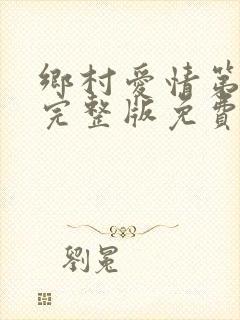 鄉村愛情第
完整版免費
劉冕